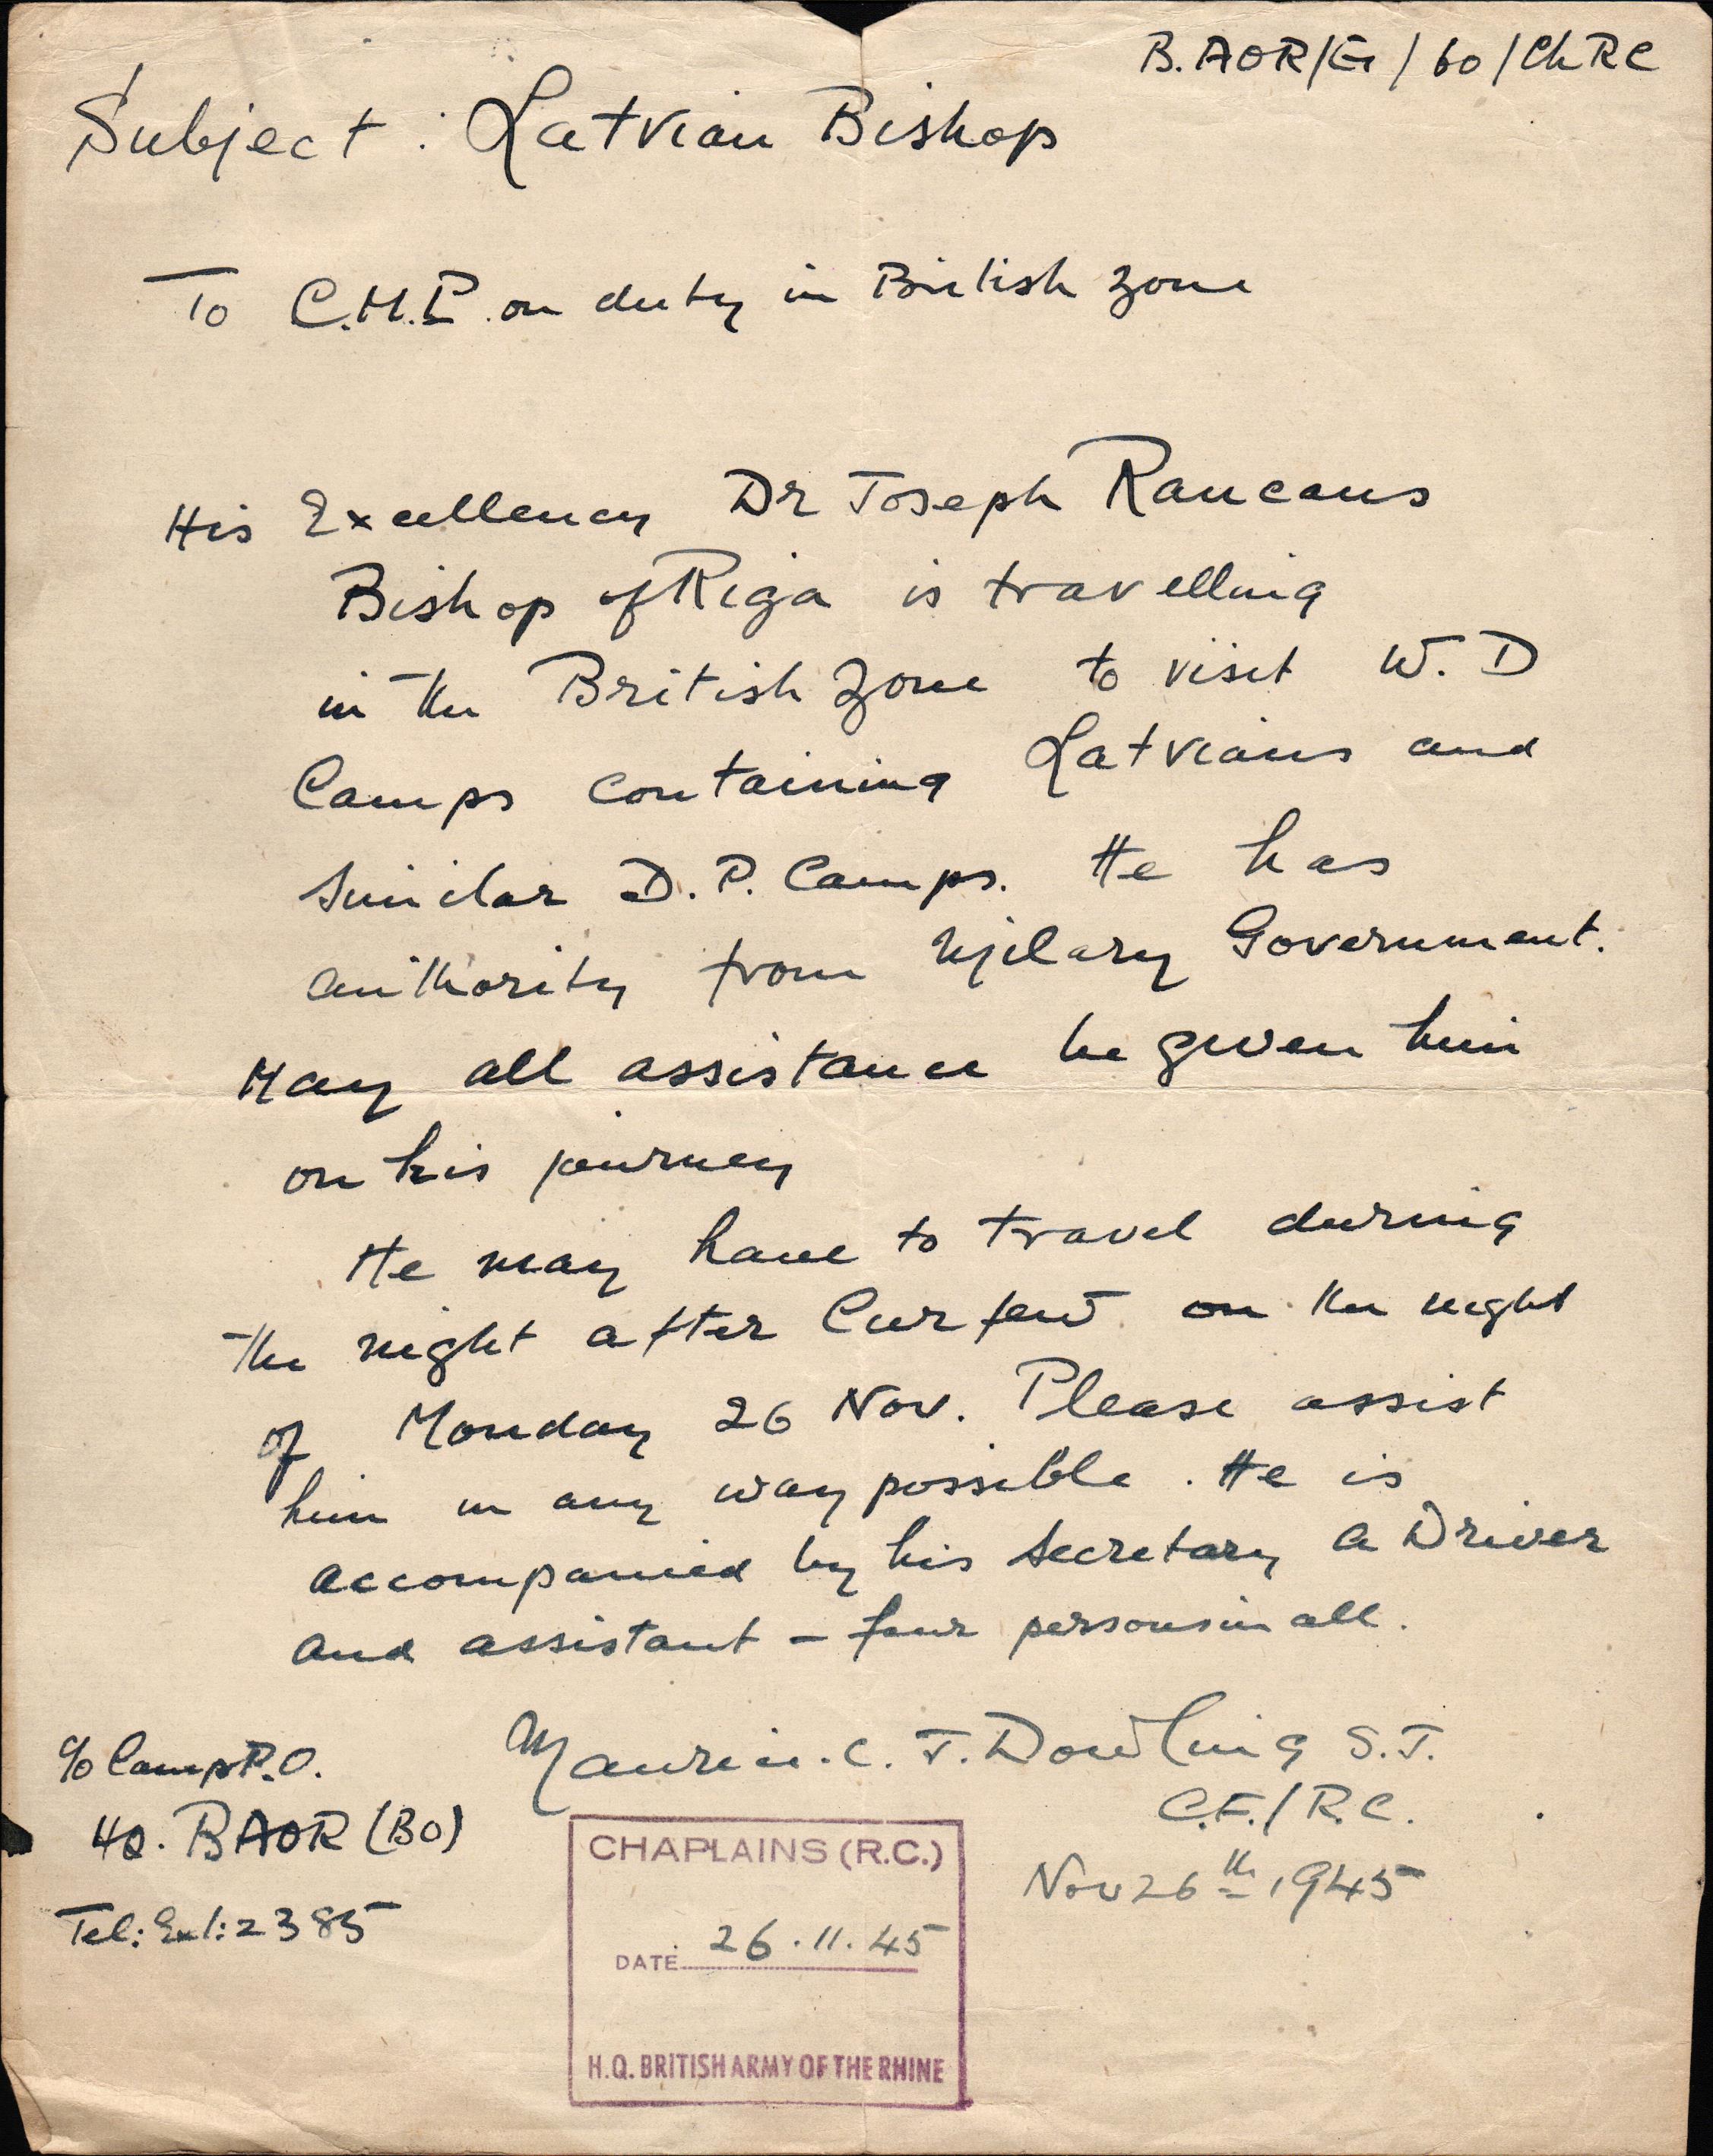 B.AOR/G/60/Ch RC
Subject: Latvian Bishop
To C.M.P. on duty in British zone
His Excellency Dr Joseph Rancans
Bishop of Riga is travelling
in the British zone to visit W.D
Camps containing Latvians and
similar D.P. Camps. He has
authority from Milary Government.
May all assistance be given him
on his journey
He may have to travel during
the night after Curfew on the night
of Monday 26 Nov. Please assist
him in any way possible. He is
accompanied by his secretary a Driver
and assistant – four persons in all.
Maurice. C. J. Dowling S.J.
C.F./R.C.
Nov 26th 1945
c/o Camp P.O.
HQ. BAOR (BO)
Tel: Ext: 2385
CHAPLAINS (R.C.)
DATE 26.11.45
H.Q. BRITISH ARMY OF THE RHINE